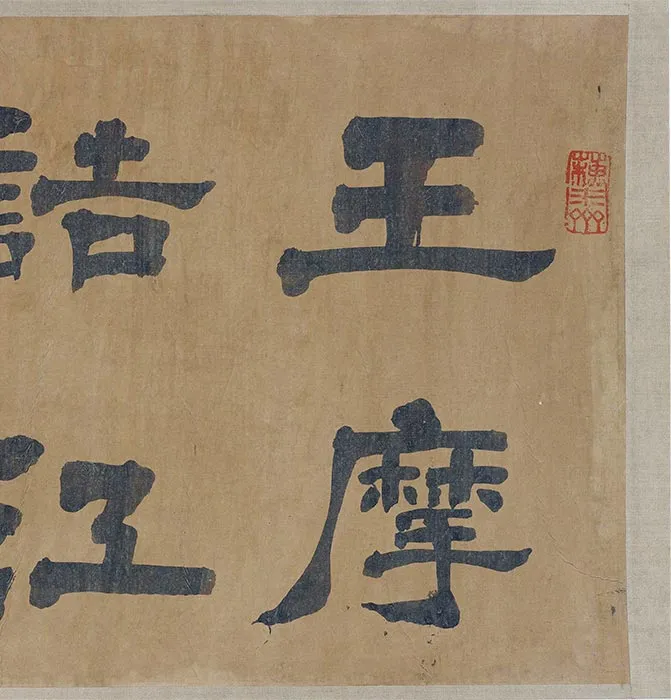 王摩
詰江